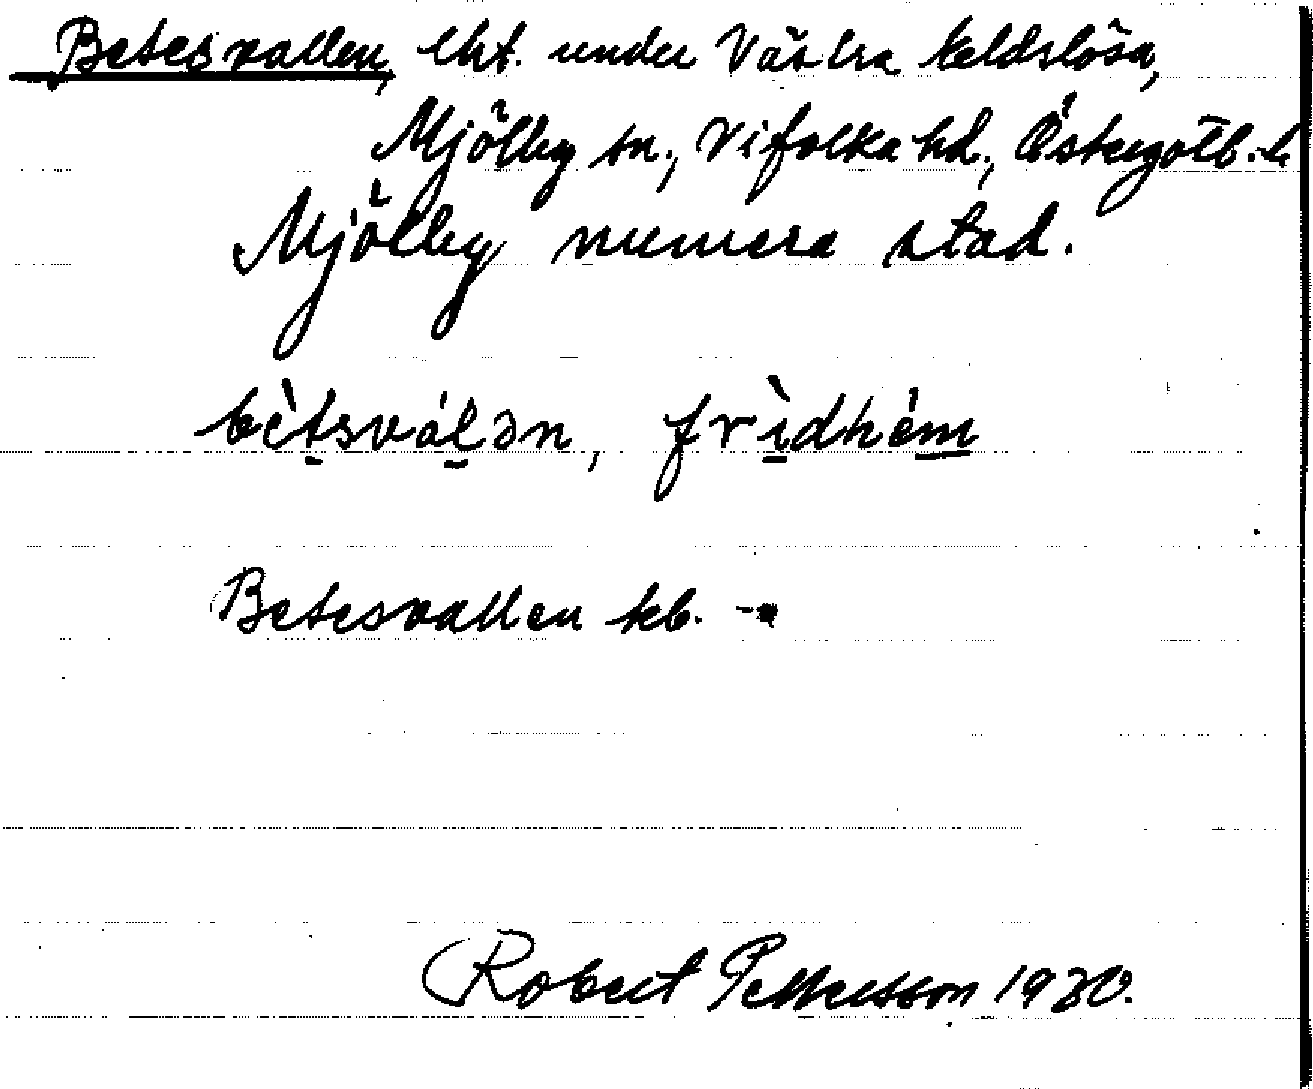 Betesvallen, lht. under Västra Eldslösa,
Mjölby sn., Vifolka hd., Östergötl. l.
Mjölby numera stad.
bètsválən, frìdhém
Betesvallen kb. –
Robert Pettersson 1930.